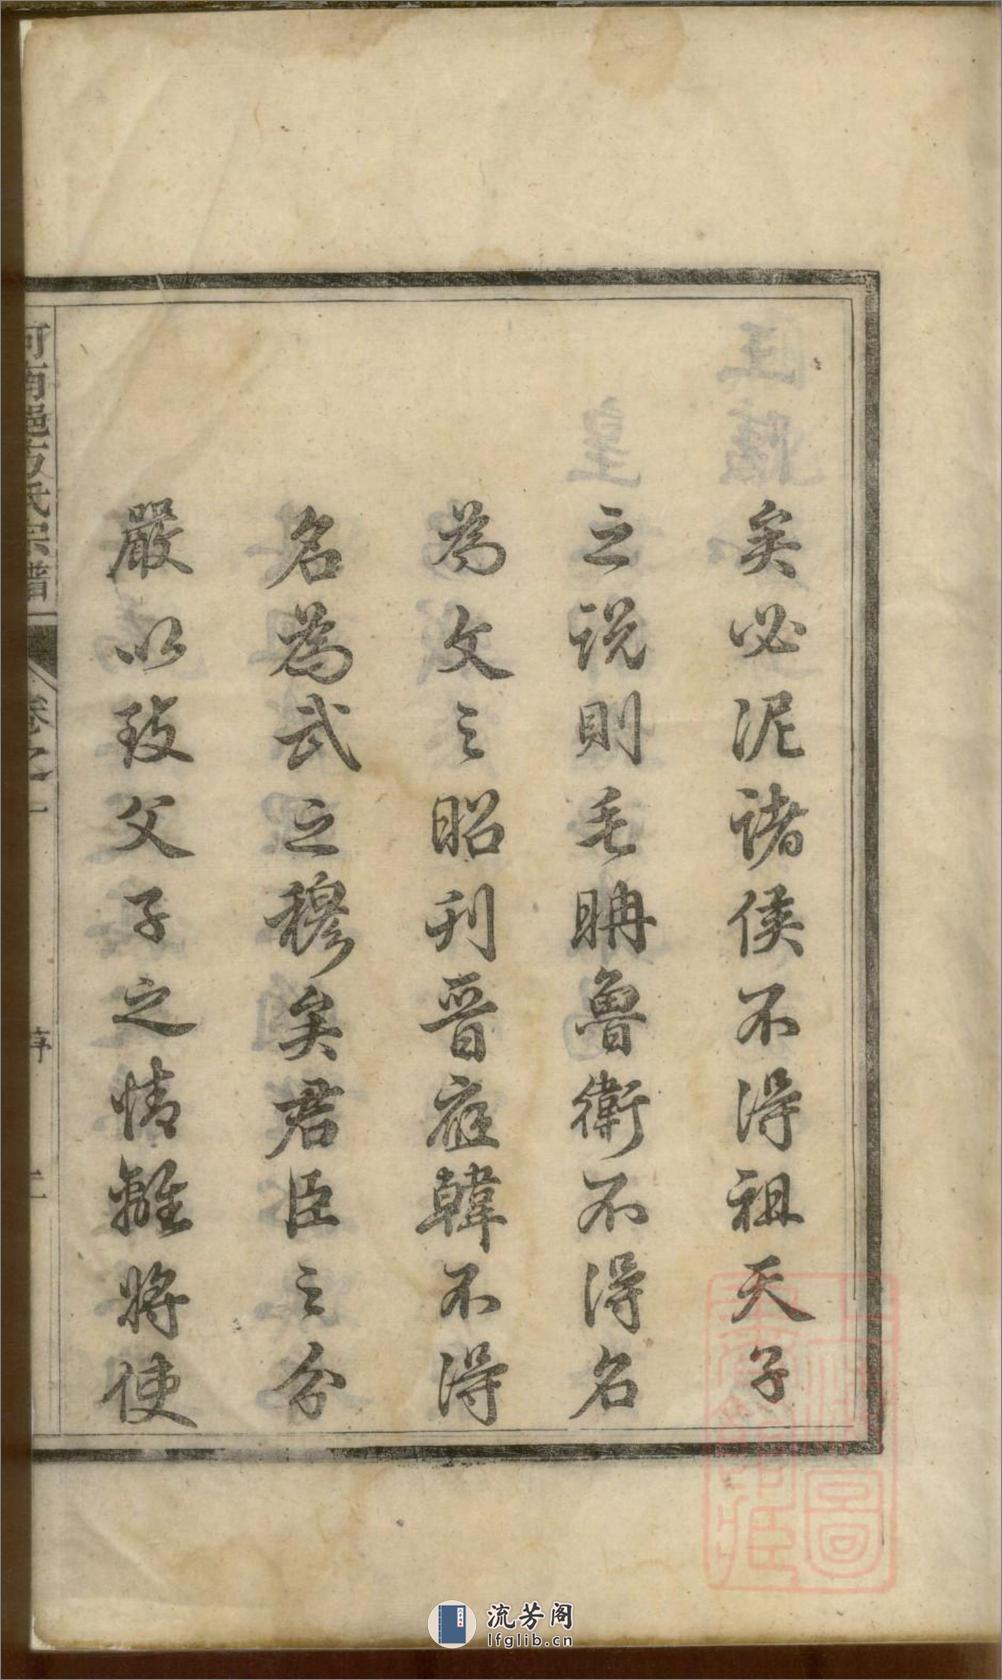 矣必泥諸侯不得祖天子
之説則毛聃魯衛不得名
為文之昭刋晋應韓不得
名為武之穆矣君臣之分
嚴以致父子之情離將使
河南邑
氏宗譜
卷之一
序
二
圖
流芳阁
lfglib.cn